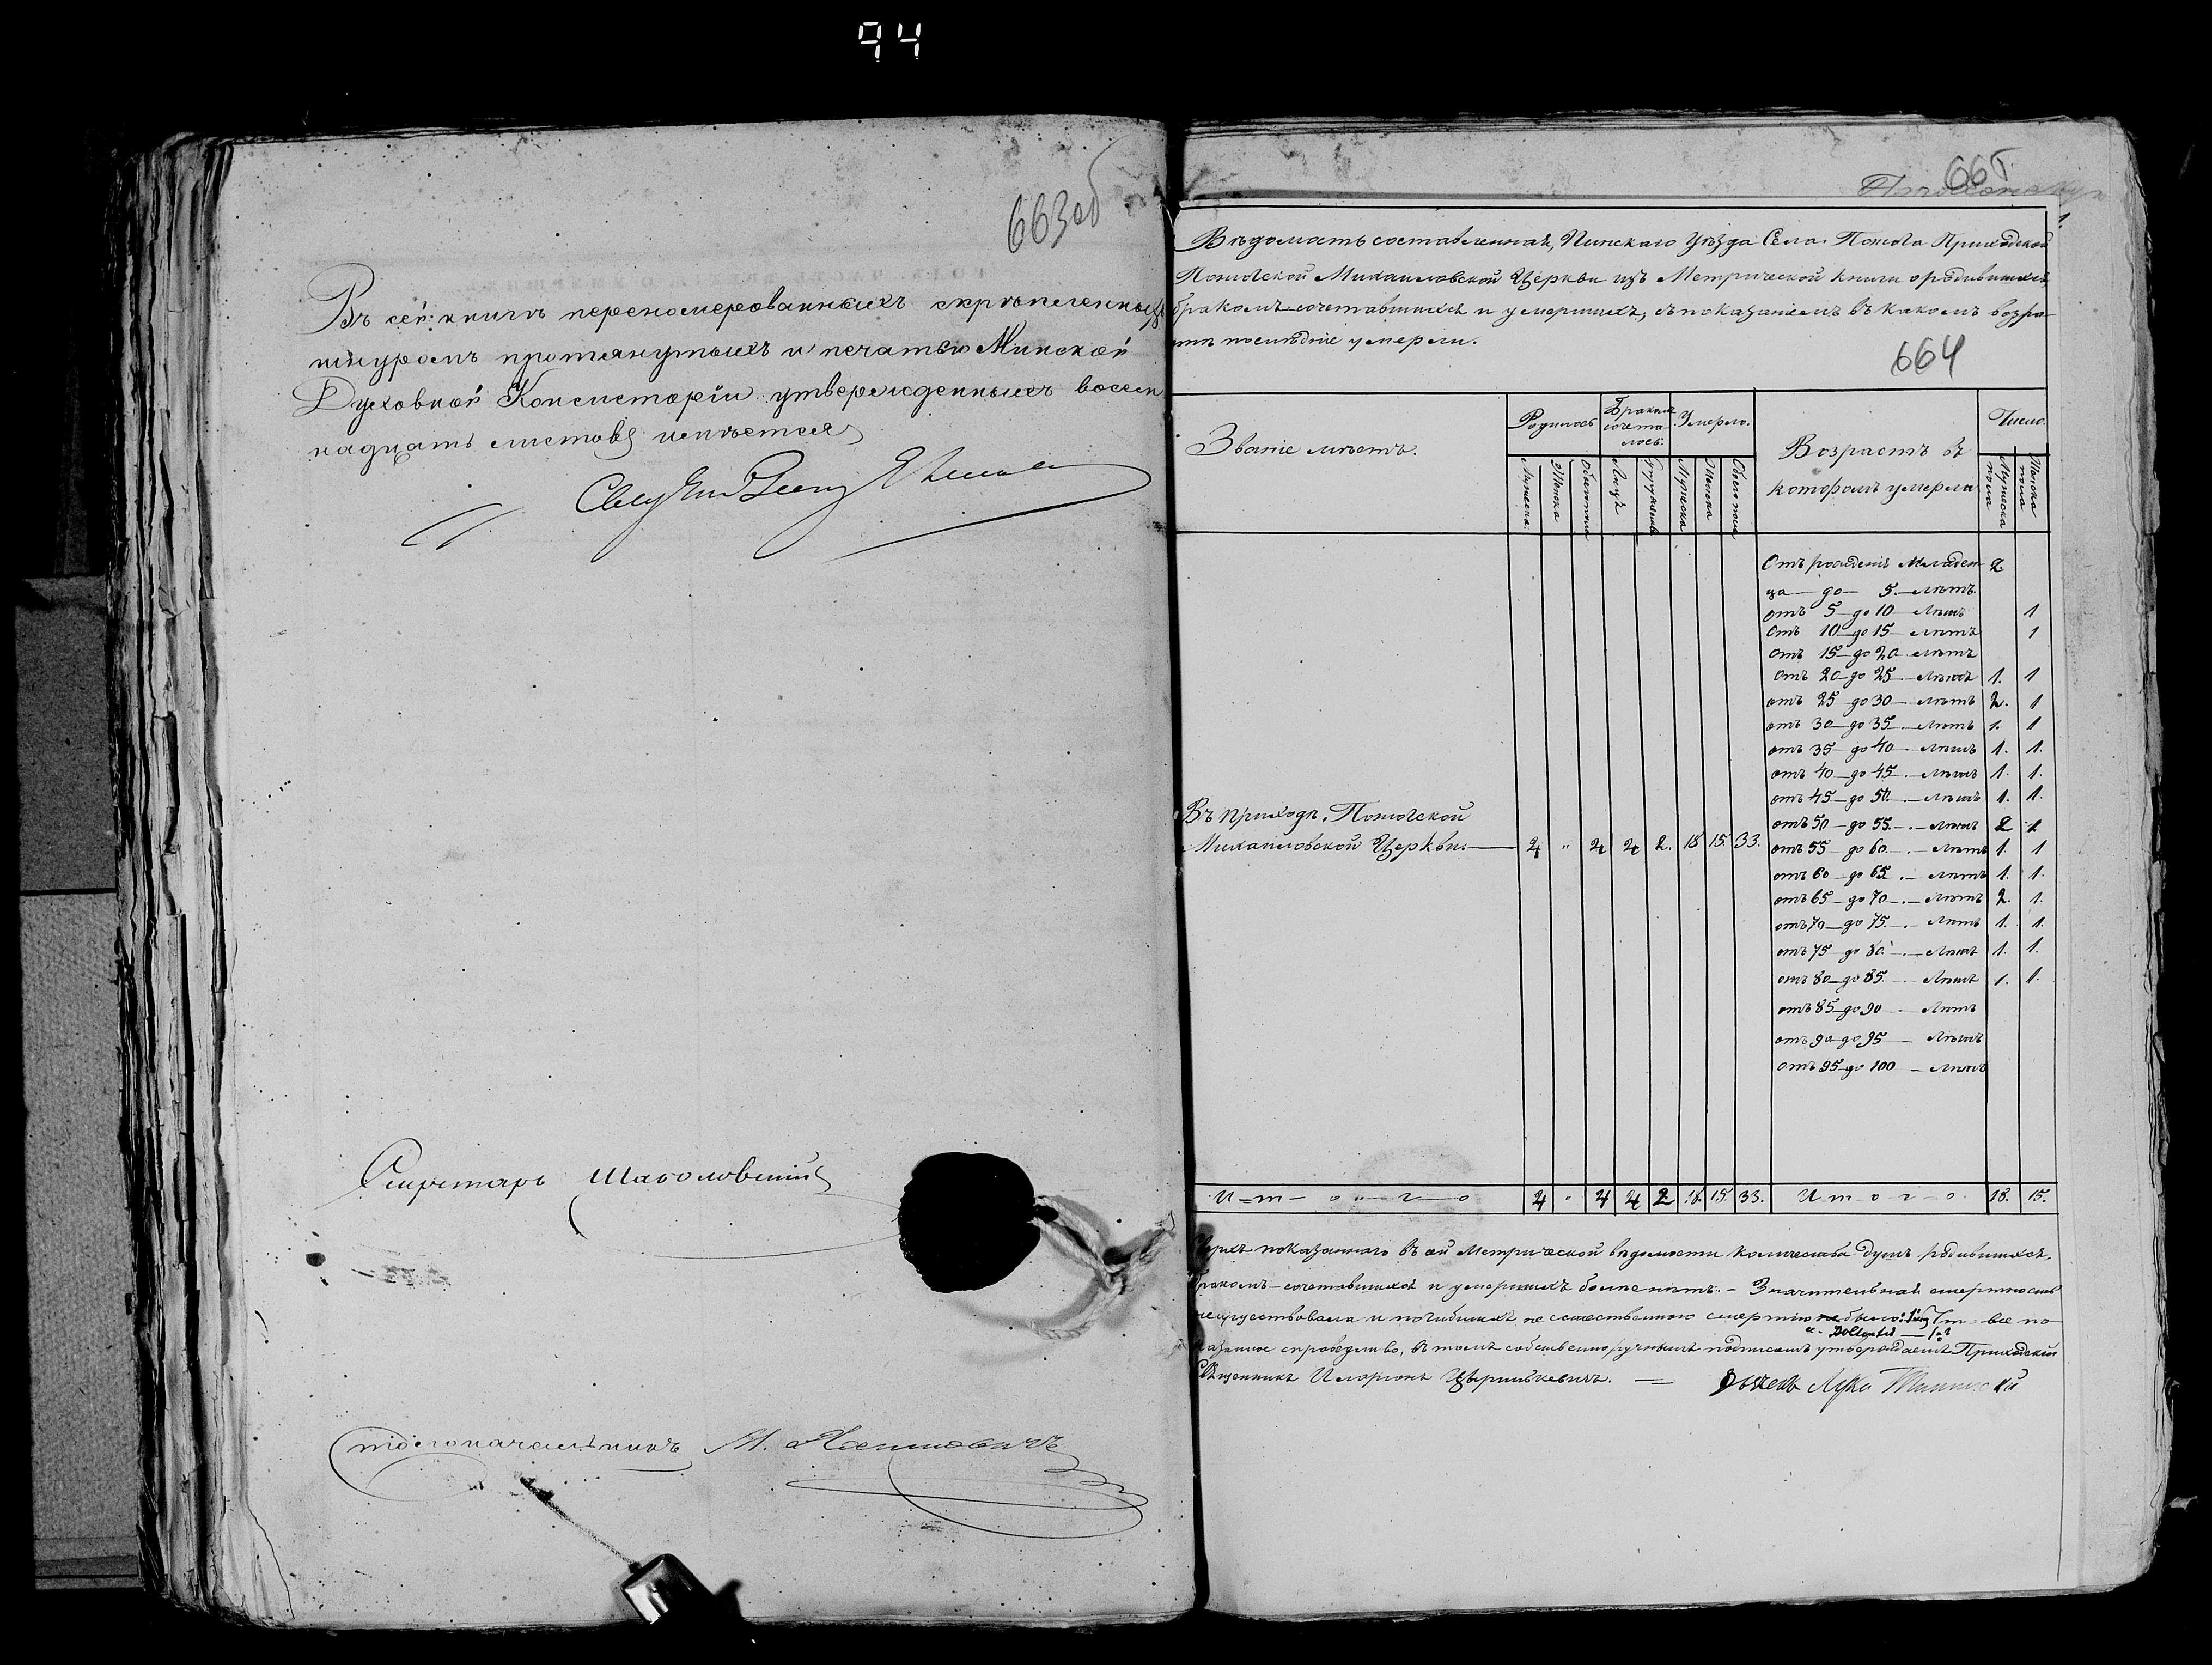 94
663 об
Въ сей книгѣ переномерованныхъ скрѣпленныхъ
шнуромъ протянутыхъ и печатью Минской
Духовной Консисторіи утвержденныхъ восем
надцать листовъ имѣется
Секретарь
М.
665
Вѣдомость составленная, Пинскаго Уѣзда Села Приходской
Михаиловской Церкви изъ Метрической книги о родившихся
бракомъ сочетавшихся и умершихъ, съ показаніемъ въ какомъ возра-
стѣ послѣдніе умерли.
664
Званіе мѣстъ. Родилось Бракомъ сочета лось. Умерло. Возрастъ въ которомъ умерла Число.
Мужеска Женска Обоего пола Лицъ Супружествъ Мужеска Женска Обоего пола Мужеска пола Женска пола
Отъ рожденія Младен 2
ца — до — 5. — лѣтъ.
отъ 5 — до 10 — Лѣтъ 1
отъ 10 — до 15 — лѣтъ 1
отъ 15 — до 20 лѣтъ
отъ 20 — до 25 — лѣтъ 1. 1
отъ 25 — до 30 — лѣтъ 2. 1
отъ 30 — до 35 — лѣтъ 1. 1
отъ 35 — до 40 — лѣтъ 1. 1.
отъ 40 — до 45 — лѣтъ 1. 1.
отъ 45 — до 50. — лѣтъ 1. 1.
отъ 50 — до 55. — лѣтъ 2 1
Въ приходѣ,
Михаиловской Церкви. — 4 " 4 4 2. 18 15 33.
отъ 55 — до 60. — лѣтъ 1. 1
отъ 60 — до 65 . — лѣтъ 1. 1.
отъ 65 — до 70 — . — лѣтъ 2. 1.
отъ 70 — до 75. — . — Лѣтъ 1. 1.
отъ 75 — до 80. — . — Лѣтъ 1. 1.
отъ 80 — до 85. — Лѣтъ 1. 1.
отъ 85 — до 90 — Лѣтъ
отъ 90 — до 95 — Лѣтъ
отъ 95 — до 100 — лѣтъ
И — т — о — г — о 4 " 4 4 2 18. 15. 33. И т о г о. 18. 15.
показаннаго въ сей Метрической вѣдомости количества душъ родившихся,
бракомъ — сочетавшихся и умершихъ болѣе нѣтъ. — Значительная смертность
и погибшихъ не естественною смертію не было: все по-
казанное справедливо, въ томъ собственноручнымъ подписомъ утверждаетъ Приходскій
Священникъ Иларіонъ — Лука